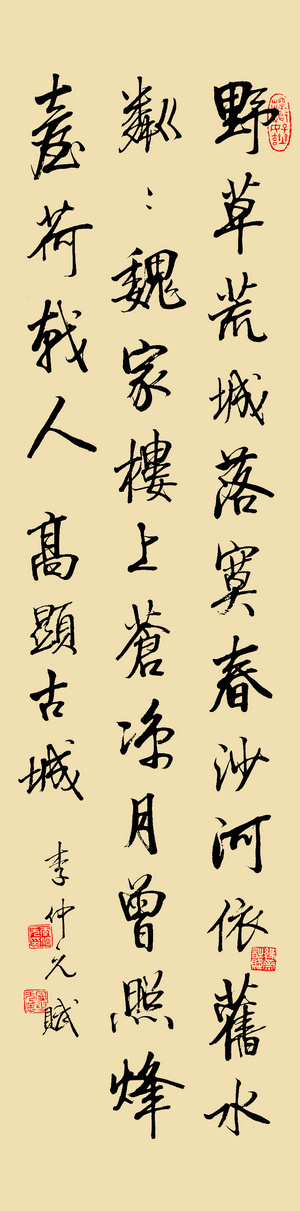 野草荒城落寞春沙河依舊水
粼:魏家樓上蒼凉月曾照烽
臺荷戟人 高顯古城
李仲元賦